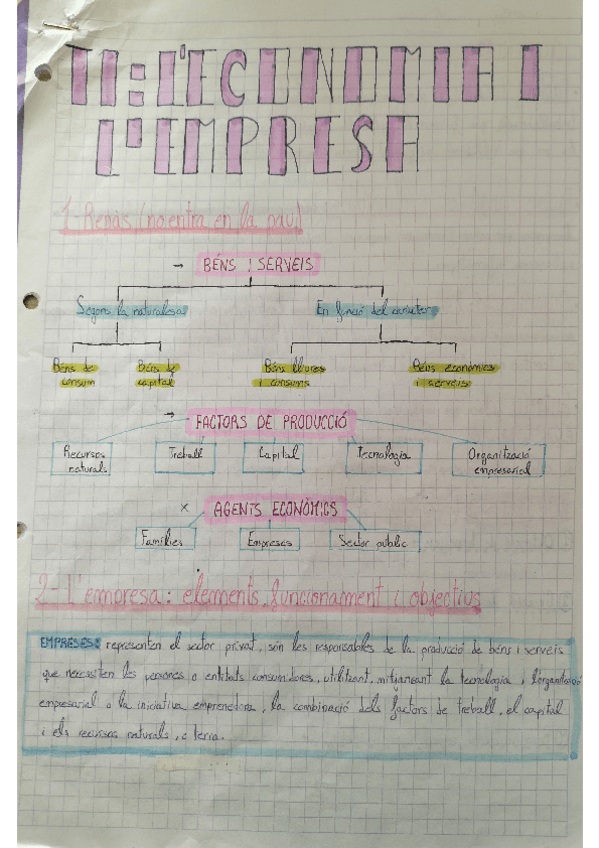 T1: L'ECONOMIA I
L'EMPRESA
1- Repàs (no entra en la pau)
→ BÉNS I SERVEIS
Segons la naturalesa
En funció del caràcter
Béns de
consum
Béns de
capital
Béns lliures
i comuns
Béns econòmics
i serveis
→ FACTORS DE PRODUCCIÓ
Recursos
naturals
Treball
Capital
Tecnologia
Organització
empresarial
× AGENTS ECONÒMICS
Famílies
Empreses
Sector públic
2- L'empresa: elements, funcionament i objectius
EMPRESES: representen el sector privat, són les responsables de la producció de béns i serveis
que necessiten les persones o entitats consumidores, utilitzant, mitjançant la tecnologia i l'organització
empresarial o la iniciativa emprenedora, la combinació dels factors de treball, el capital
i els recursos naturals, o terra.